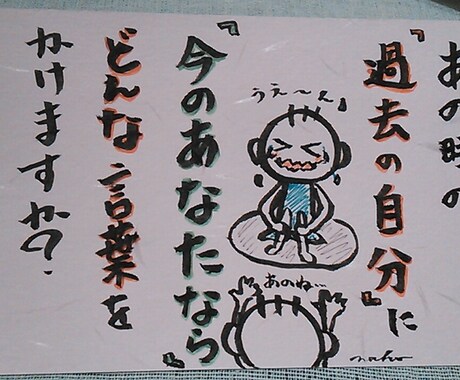 あの時の
『過去の自分』に
『今のあなたなら』
どんな言葉を
かけますか?
うえ〜ん
あのね…
naho